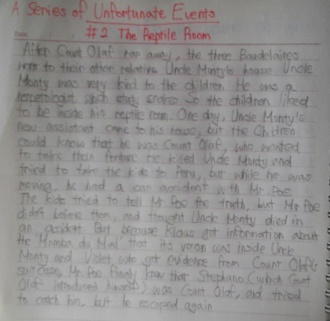 A Series of Unfortunate Events
#2 The Reptile Room
Date
After Count Olaf ran away, the three Baudelaires
went to their other relative Uncle Monty's house. Uncle
Monty was very kind to the children. He was a
herpetologist which study snakes so the children liked
to be inside his reptile room. One day, Uncle Monty's
new assistant came to his house, but the children
could know that he was Count Olaf, who wanted
to take their fortune. He killed Uncle Monty and
tried to take the kids to Peru, but while he was
moving, he had a car accident with Mr. Poe
The kids tried to tell Mr. Poe the truth, but Mr Poe
didn't believe them, and thought Uncle Monty died in
an accident. But because Klaus got information about
the Mamba du Mal that its venom was inside Uncle
Monty and Violet got evidence from Count Olaf's
suitcase, Mr. Poe finally knew that Stephano (which Count
Olaf introduced himself) was Count Olaf, and tried
to catch him, but he escaped again